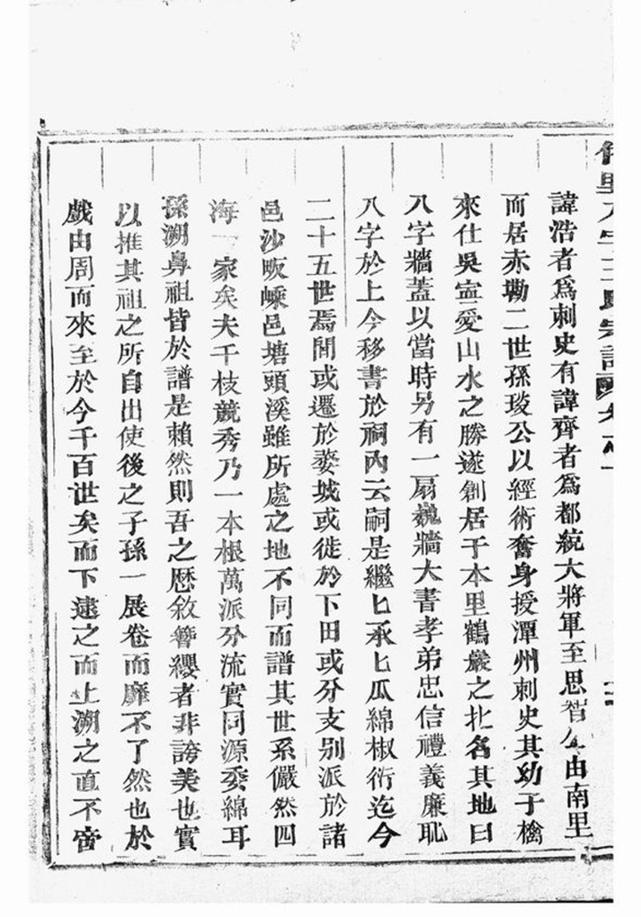 八字王氏宗譜
諱浩者爲刺史有諱齊者爲都統大將軍至思智公由南里
而居赤墈二世孫琰公以經術奮身授潭州刺史其幼子檎
來仕吳寧愛山水之勝遂創居于本里鶴巖之北名其地曰
八字牆蓋以當時另有一扇巍牆大書孝弟忠信禮義廉恥
八字於上今移書於祠內云嗣是繼匕承匕瓜綿椒衍迄今
二十五世焉閒或遷於婺城或徙於下田或分支別派於諸
邑沙畈嵊邑塘頭溪雖所處之地不同而譜其世系儼然四
海一家矣夫千枝競秀乃一本根萬派分流實同源委綿耳
孫溯鼻祖皆於譜是賴然則吾之歷敘簪纓者非誇美也實
以推其祖之所自出使後之子孫一展卷而靡不了然也於
戲由周而來至於今千百世矣而下逮之而上溯之直不啻